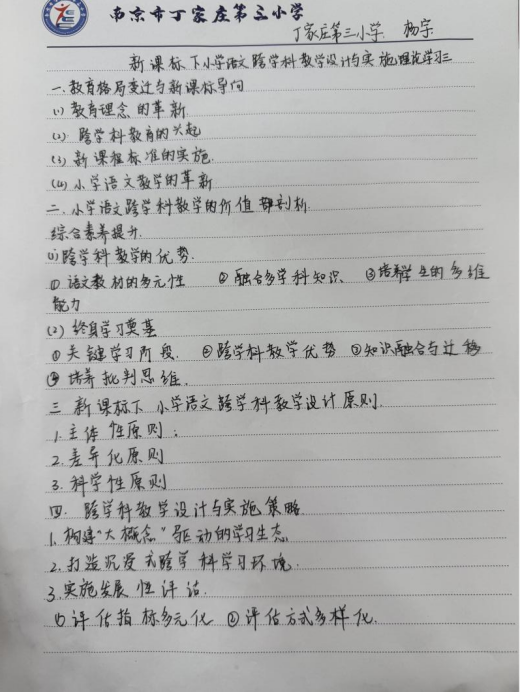 南京市丁家庄第三小学
丁家庄第三小学 杨宇
新课标下小学语文跨学科教学设计与实施理论学习三
一、教育格局变迁与新课标导向
(1) 教育理念的革新
(2) 跨学科教育的兴起
(3) 新课程标准的实施
(4) 小学语文教学的革新
二、小学语文跨学科教学的价值剖析
综合素养提升
(1) 跨学科教学的优势
① 语文教材的多元性 ② 融合多学科知识 ③ 培养学生的多维
能力
(2) 终身学习奠基
① 关键学习阶段 ② 跨学科教学优势 ③ 知识融合与迁移
④ 培养批判思维.
三 新课标下小学语文跨学科教学设计原则.
1. 主体性原则;
2. 差异化原则
3. 科学性原则
四. 跨学科教学设计与实施策略
1. 构建“大概念”驱动的学习生态
2. 打造沉浸式跨学科学习环境.
3. 实施发展性评估.
① 评估指标多元化 ② 评估方式多样化.